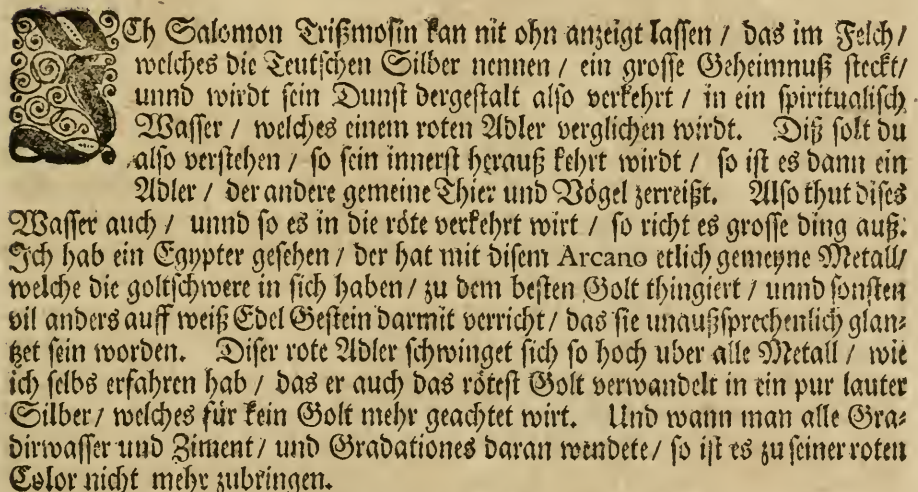 ICh Salomon Trißmosin kan nit ohn anzeigt lassen / das im Felch /
welches die Teutschen Silber nennen / ein grosse Geheimnuß steckt /
unnd wirdt sein Dunst dergestalt also verkehrt / in ein spiritualisch
Wasser / welches einem roten Adler verglichen wirdt. Diß solt du
also verstehen / so sein innerst herauß kehrt wirdt / so ist es dann ein
Adler / der andere gemeine Thier und Vögel zerreißt. Also thut dises
Wasser auch / unnd so es in die röte verkehrt wirt / so richt es grosse ding auß.
Ich hab ein Egypter gesehen / der hat mit disem Arcano etlich gemeyne Metall /
welche die goltschwere in sich haben / zu dem besten Golt thingiert / unnd sonsten
vil anders auff weiß Edel Gestein darmit verricht / das sie unaußsprechenlich glan⸗
tzet sein worden. Diser rote Adler schwinget sich so hoch uber alle Metall / wie
ich selbs erfahren hab / das er auch das rötest Golt verwandelt in ein pur lauter
Silber / welches für kein Golt mehr geachtet wirt. Und wann man alle Gra⸗
dirwasser und Ziment / und Gradationes daran wendete / so ist es zu seiner roten
Color nicht mehr zubringen.